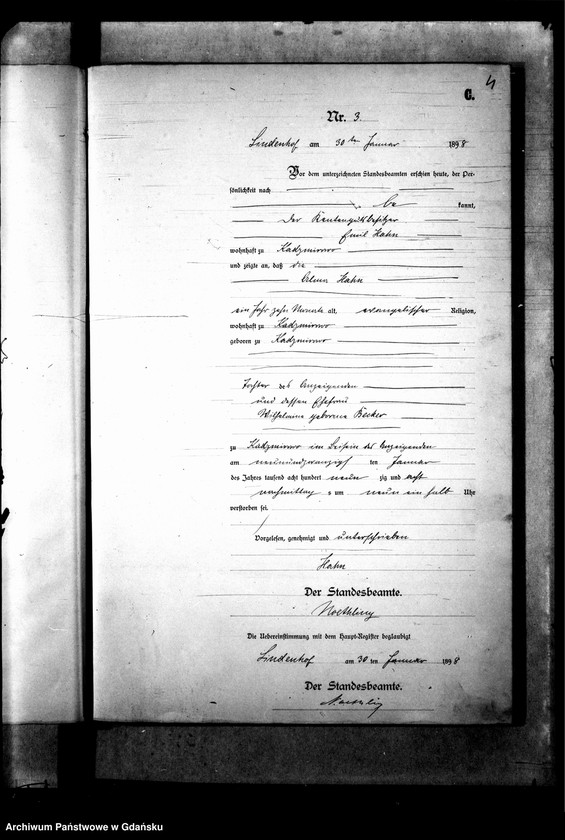 4
C.
Nr. 3.
Lindenhof am 30ten Januar 1898
Vor dem unterzeichneten Standesbeamten erschien heute, der Per-
sönlichkeit nach
be kannt,
der Rentengutsbesitzer
Emil Hahn
wohnhaft zu Kadzmirrwo
und zeigte an, daß die
Hahn
ein Jahr zehn Monate alt, evangelischer Religion,
wohnhaft zu Kadzmirrwo
geboren zu Kadzmirrwo
Tochter des Anzeigenden
und dessen Ehefrau
Wilhelmine geborene Becker
zu Kadzmirrwo im Beisein des Anzeigenden
am neunundzwanzigsten Januar
des Jahres tausend acht hundert neun zig und acht
nachmittags um neun ein halb Uhr
verstorben sei.
Vorgelesen, genehmigt und unterschrieben
Hahn
Der Standesbeamte.
Noethling
Die Uebereinstimmung mit dem Haupt-Register beglaubigt
Lindenhof am 30 ten Januar 1898
Der Standesbeamte.
Noethling
Archiwum Państwowe w Gdańsku